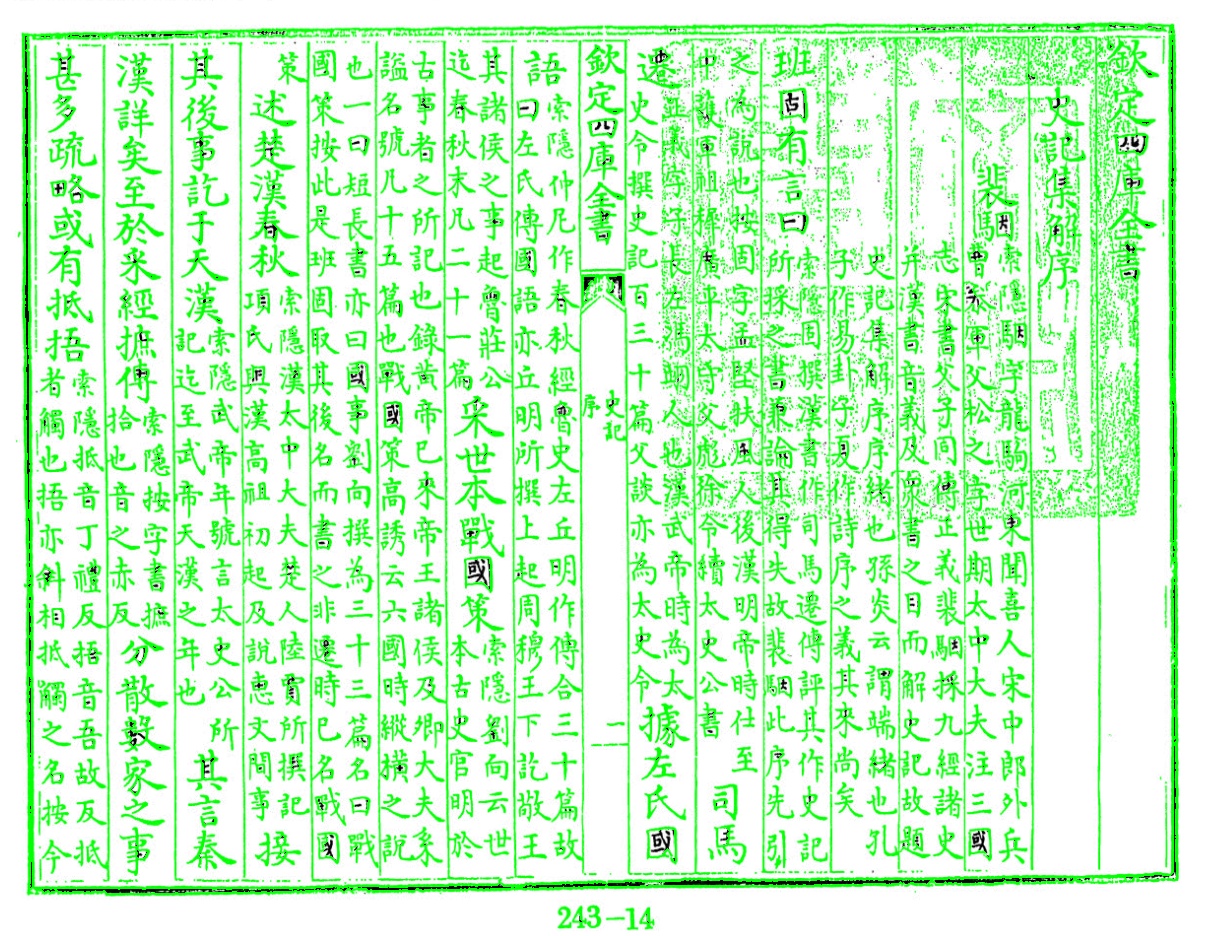 欽定四庫全書
史記集解序
裴駰
索隱駰字龍駒河東聞喜人宋中郎外兵
曹參軍父松之字世期太中大夫注三國
志宋書父子同傳正義裴駰採九經諸史
并漢書音義及衆書之目而解史記故題
史記集解序序緒也孫炎云謂端緒也孔
子作易卦子夏作詩序之義其來尚矣
班固有言曰
索隱固撰漢書作司馬遷傳評其作史記
所採之書兼論其得失故裴駰此序先引
之為說也按固字孟堅扶風人後漢明帝時仕至
中護軍祖穉廣平太守父彪徐令續太史公書
司馬
遷
正義字子長左馮翊人也漢武帝時為太
史令撰史記百三十篇父談亦為太史令
據左氏國
欽定四庫全書
史記
序
一
語
索隱仲尼作春秋經魯史左丘明作傳合三十篇故
曰左氏傳國語亦丘明所撰上起周穆王下訖敬王
其諸侯之事起魯莊公
迄春秋末凡二十一篇
采世本戰國策
索隱劉向云世
本古史官明於
古事者之所記也錄黃帝已來帝王諸侯及卿大夫系
諡名號凡十五篇也戰國策高誘云六國時縱横之說
也一曰短長書亦曰國事劉向撰為三十三篇名曰戰
國策按此是班固取其後名而書之非遷時已名戰國
策
述楚漢春秋
索隱漢太中大夫楚人陸賈所撰記
項氏與漢高祖初起及說惠文間事
接
其後事訖于天漢
索隱武帝年號言太史公所
記迄至武帝天漢之年也
其言秦
漢詳矣至於采經摭傳
索隱按字書摭
拾也音之亦反
分散數家之事
甚多疏略或有抵捂
索隱抵音丁禮反捂音吾故反抵
者觸也捂亦斜相抵觸之名按今
243-14